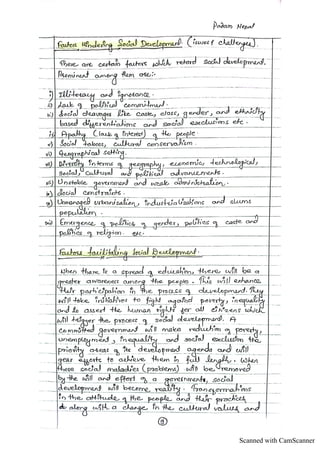 Pudam Nepal
Factors Hindering Social Development (issues & challenges).
There are certain factors which retard social development.
Prominent among them are:-
i) Illiteracy and ignorance.
ii) Lack of political commitment.
iii) Social cleavages like caste, class, gender, and ethnicity
based differentiations and social exclusions etc.
iv) Apathy (lack of interest) of the people.
v) Social taboos, cultural conservatism.
vi) Geographical setting.
vii) Diversity interms of geography, economic, technological,
social, cultural and political advancements.
viii) Unstable government and weak administration.
ix) Social constraints.
x) Unmanaged urbanization, industrializations and slums
population.
xi) Emergence of politics of gender, politics of caste and
politics of religion. etc.
Factors facilitating Social Development.
When there is a spread of education, there will be a
greater awareness among the people. This will enhance
their participation in the process of development. They
will take initiatives to fight against poverty, inequality
and to assert the human rights for all citizens which
will trigger the process of social development. A
committed government will make reduction of poverty,
unemployment, inequality and social exclusion the
priority areas of its development agenda and will
gear efforts to achieve them in full length. When
these social maladies (problems) will be removed
by the will and effort of a government, social
development will become reality. Transformations
in the attitude of the people and their practices
along with a change in the cultural values and
Scanned with CamScanner